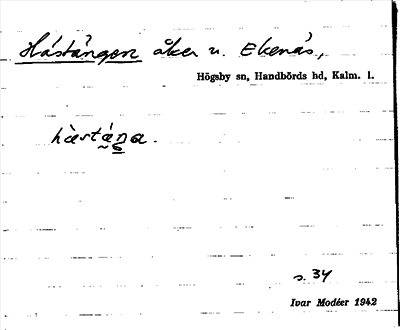 Hästängen åker u. Ekenäs,
Högsby sn, Handbörds hd, Kalm. l.
hàstáṉa.
s. 34
Ivar Modéer 1942